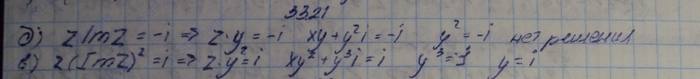 3321
д) z Imz = -i => z·y = -i xy + y²i = -i y² = -i нет решения
в) z(Imz)² = i => z·y² = i xy² + y³i = i y³ = 1 y = i